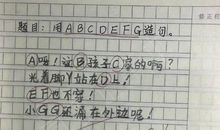 题目：用ABCDEFG造句。
A呀！这B孩子C家的啊？
光着脚丫站在D上！
EF也不穿！
小GG还滴在外边呢！